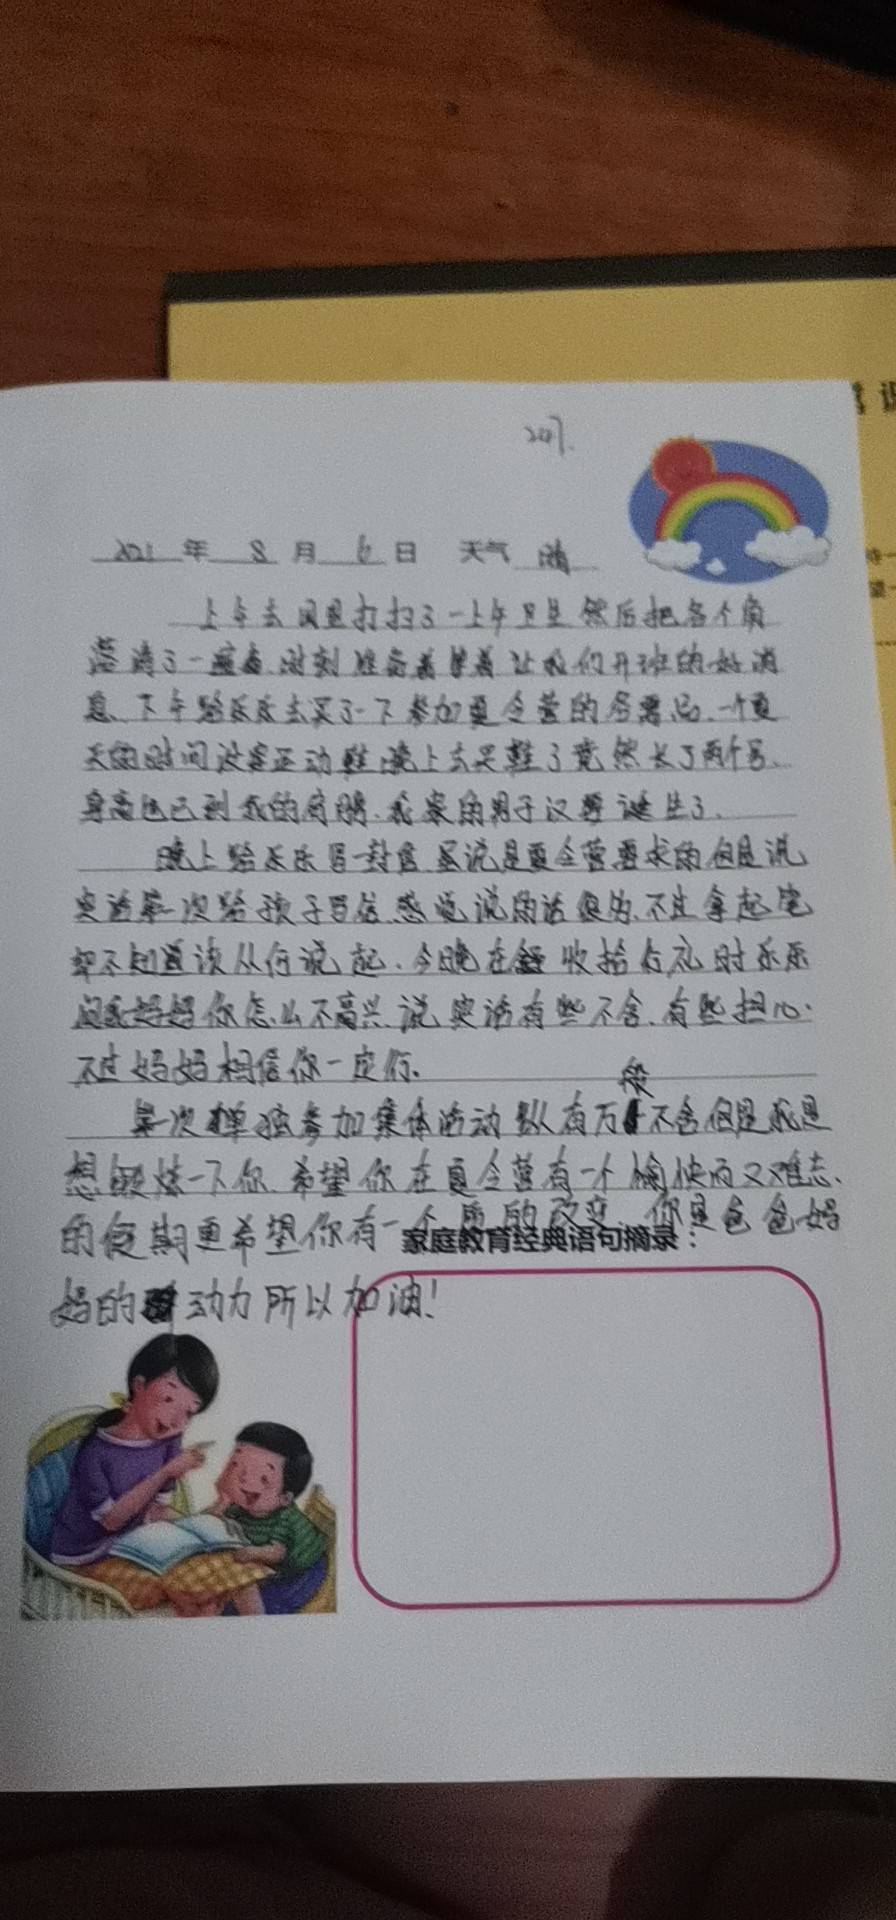 247.
2021年8月6日 天气 晴
上午去园里打扫了一上午卫生然后把各个角
落消了一遍毒.时刻准备着等着让我们开班的好消
息.下午给乐乐去买了一下参加夏令营的必需品.一个夏
天的时间没穿运动鞋晚上去买鞋了竟然长了两个号.
身高也已到我的肩膀.我家的男子汉要诞生了.
晚上给乐乐写一封信.虽说是夏令营要求的但是说
实话第一次给孩子写信.感觉说的话很多.不过拿起笔
却不知道该从何说起.今晚在收拾行礼时乐乐
问我妈妈你怎么不高兴.说实话有些不舍.有些担心.
不过妈妈相信你一定行.
第一次单独参加集体活动纵有万般不舍但是我是
想锻炼一下你.希望你在夏令营有一个愉快而又难忘.
的假期更希望你有一个质的改变.你是爸爸妈
家庭教育经典语句摘录：
妈的动力所以加油！